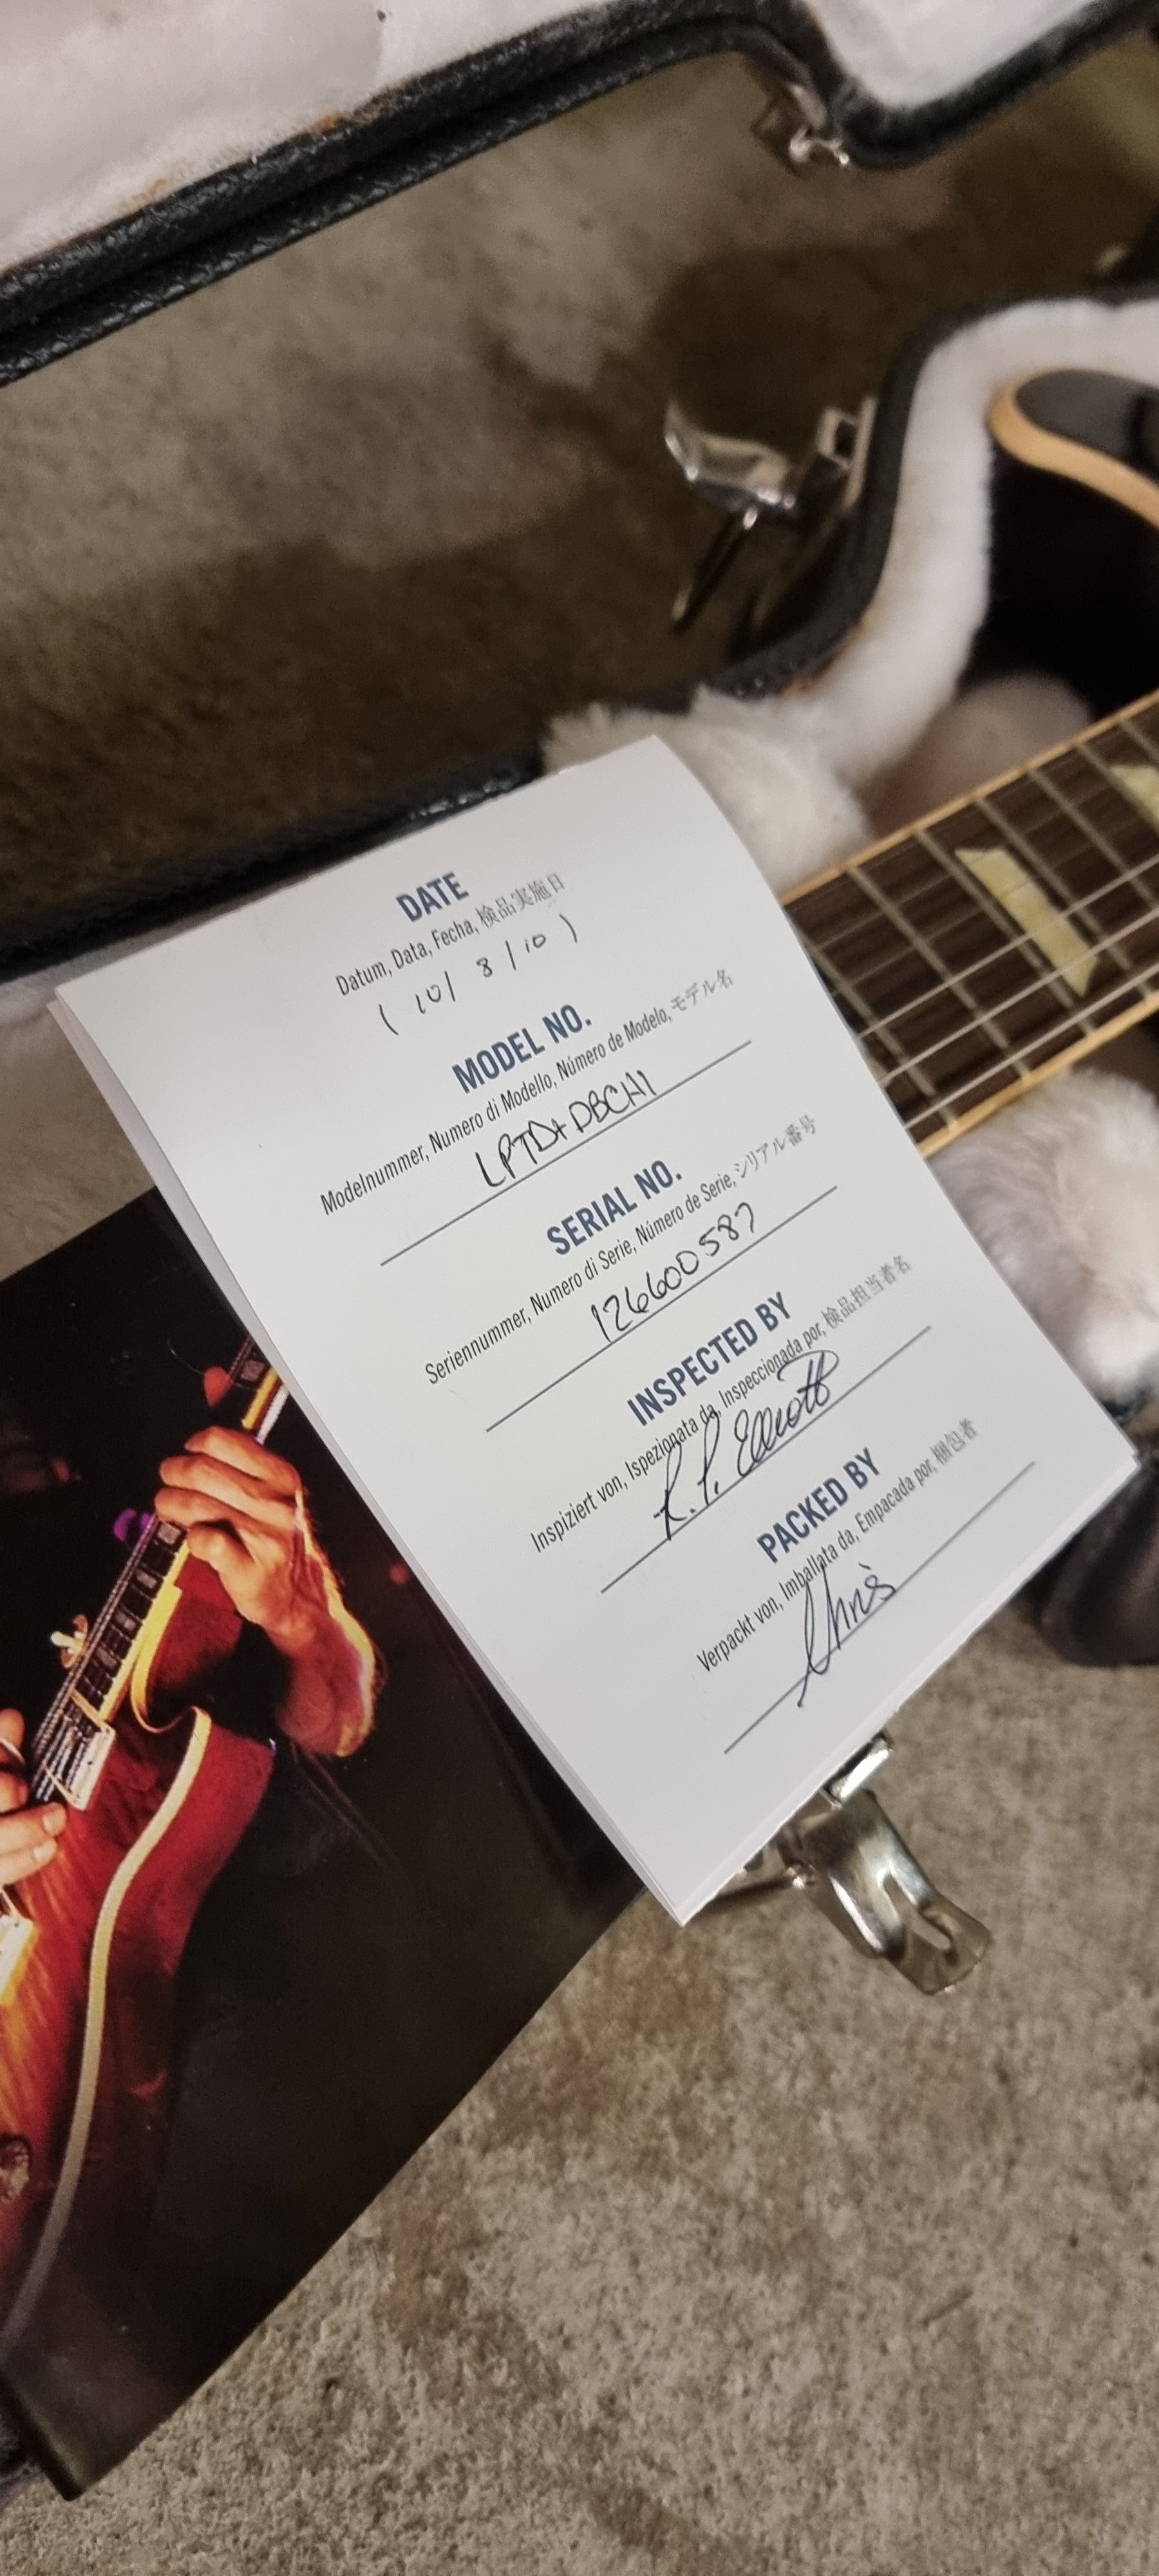 DATE
Datum, Data, Fecha, 検品実施日
( 10/ 8 / 10 )
MODEL NO.
Modelnummer, Numero di Modello, Número de Modelo, モデル名
LPTD+DBCH1
SERIAL NO.
Seriennummer, Numero di Serie, Número de Serie, シリアル番号
126600587
INSPECTED BY
Inspiziert von, Ispezionata da, Inspeccionada por, 検品担当者名
R. P. Elliott
PACKED BY
Verpackt von, Imballata da, Empacada por, 梱包者
Chris